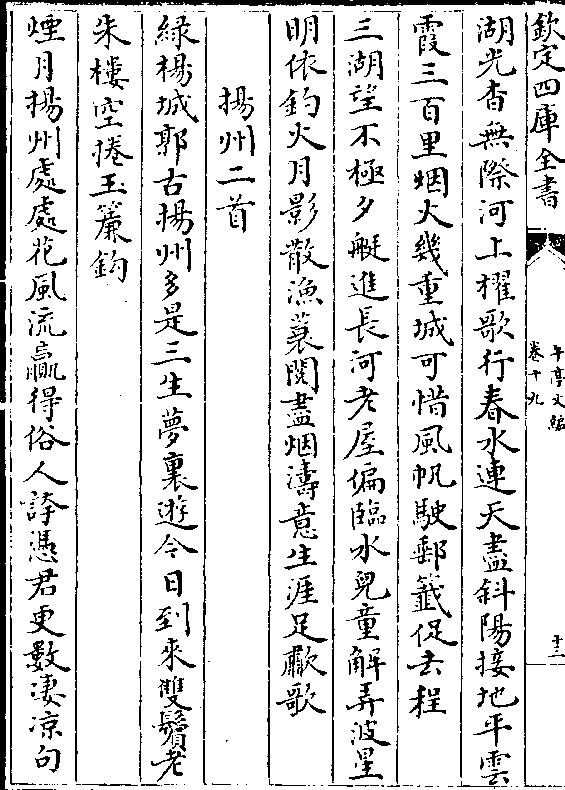 欽定四庫全書
午亭文編
卷十九
十二
湖光杳無際河上櫂歌行春水連天盡斜陽接地平雲
霞三百里烟火幾重城可惜風帆駛郵籤促去程
三湖望不極夕艇進長河老屋偏臨水兒童解弄波星
明依釣火月影散漁蓑閱盡烟濤意生涯足歗歌
揚州二首
緑楊城郭古揚州多是三生夢裏遊今日到來雙鬢老
朱樓空捲玉簾鈎
煙月揚州處處花風流贏得俗人誇憑君更數淒凉句